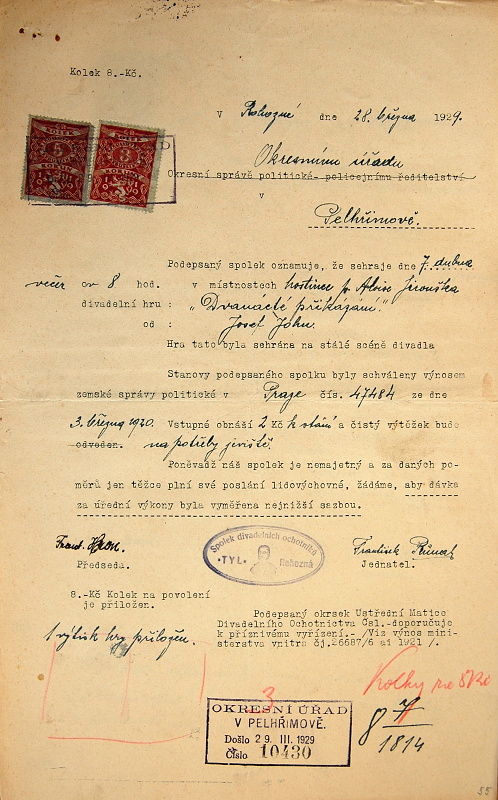 Kolek 8.-Kč.
V Rohozné dne 28. března 1929.
KOLEK KOLEK
5 3
KORUN KORUNY
1919 1919
Okresnímu úřadu
Okresní správě politické- policejnímu ředitelství
v
Pelhřimově.
Podepsaný spolek oznamuje, že sehraje dne 7. dubna
večer ov 8 hod. v místnostech hostince p. Aloise Jirouška
divadelní hru : „Dvanácté přikázání."
od : Josef John.
Hra tato byla sehrána na stálé scéně divadla
Stanovy podepsaného spolku byly schváleny výnosem
zemské správy politické v Praze čís. 47484 ze dne
3. března 1920. Vstupné obnáší 2 Kč k stání a čistý výtěžek bude
odveden. na potřeby jeviště.
Poněvadž náš spolek je nemajetný a za daných po-
měrů jen těžce plní své poslání lidovýchovné, žádáme, aby dávka
za úřední výkony byla vyměřena nejnižší sazbou.
Frant.
Předseda.
Spolek divadelních ochotníků
"TYL" Rohozná
František
Jednatel.
8.-Kč Kolek na povolení
je přiložen.
1 výtisk hry přiložen.
Podepsaný okrsek Ustřední Matice
Divadelního Ochotnictva Čsl.-doporučuje
k příznivému vyřízení.-/Viz výnos mini-
sterstva vnitra čj.26687/6 ai 1921 /.
Kolky za 8 Kč
3
OKRESNÍ ÚŘAD
V PELHŘIMOVĚ.
Došlo 29. III. 1929
Číslo 10430
8 7/1814
55